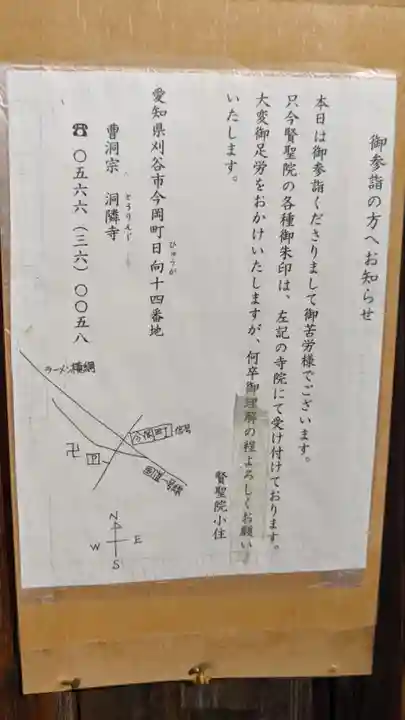 御参詣の方へお知らせ
本日は御参詣くださりまして御苦労様でございます。
只今賢聖院の各種御朱印は、左記の寺院にて受け付けております。
大変御足労をおかけいたしますが、何卒御理解の程よろしくお願い
いたします。
賢聖院小住
愛知県刈谷市今岡町日向十四番地
ひゅうが
曹洞宗 洞隣寺
とうりんじ
☎ 〇五六六(三六)〇〇五八
ラーメン横綱
今岡町
信号
国道一号線
卍
P
N
W
E
S